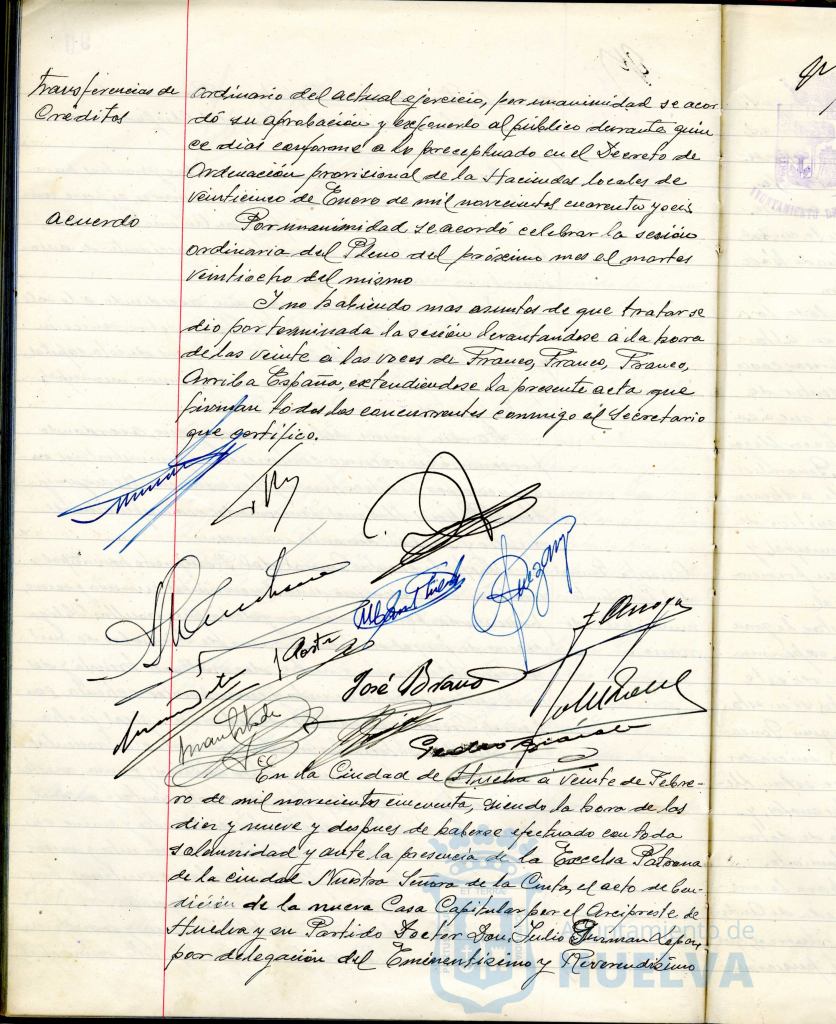 Transferencias de
Creditos
ordinario del actual ejercicio, por unanimidad se acor-
dó su aprobación y exponerlo al público durante quin
ce dias conforme a lo preceptuado en el Decreto de
Ordenación provisional de la Haciendas locales de
veinticinco de Enero de mil novecientos cuarenta y seis
acuerdo
Por unanimidad se acordó celebrar la sesión
ordinaria del Pleno del próximo mes el martes
veintiocho del mismo
Y no habiendo mas asuntos de que tratar se
dio por terminada la sesión levantandose a la hora
de las veinte a las voces de Franco, Franco, Franco,
Arriba España, extendiendose la presente acta que
firman todos los concurrentes conmigo el Secretario
que certifico.
José Bravo
En la Ciudad de Huelva a veinte de Febre-
ro de mil novecientos cincuenta, siendo la hora de las
diez y nueve y despues de haberse efectuado con toda
solemnidad y ante la presencia de la Excelsa Patrona
de la ciudad Nuestra Señora de la Cinta, el acto de ben-
dición de la nueva Casa Capitular por el Arcipreste de
Huelva y su Partido Doctor Don Julio Guzman
por delegación del Eminentisimo y Reverendisimo
Ayuntamiento de
HUELVA